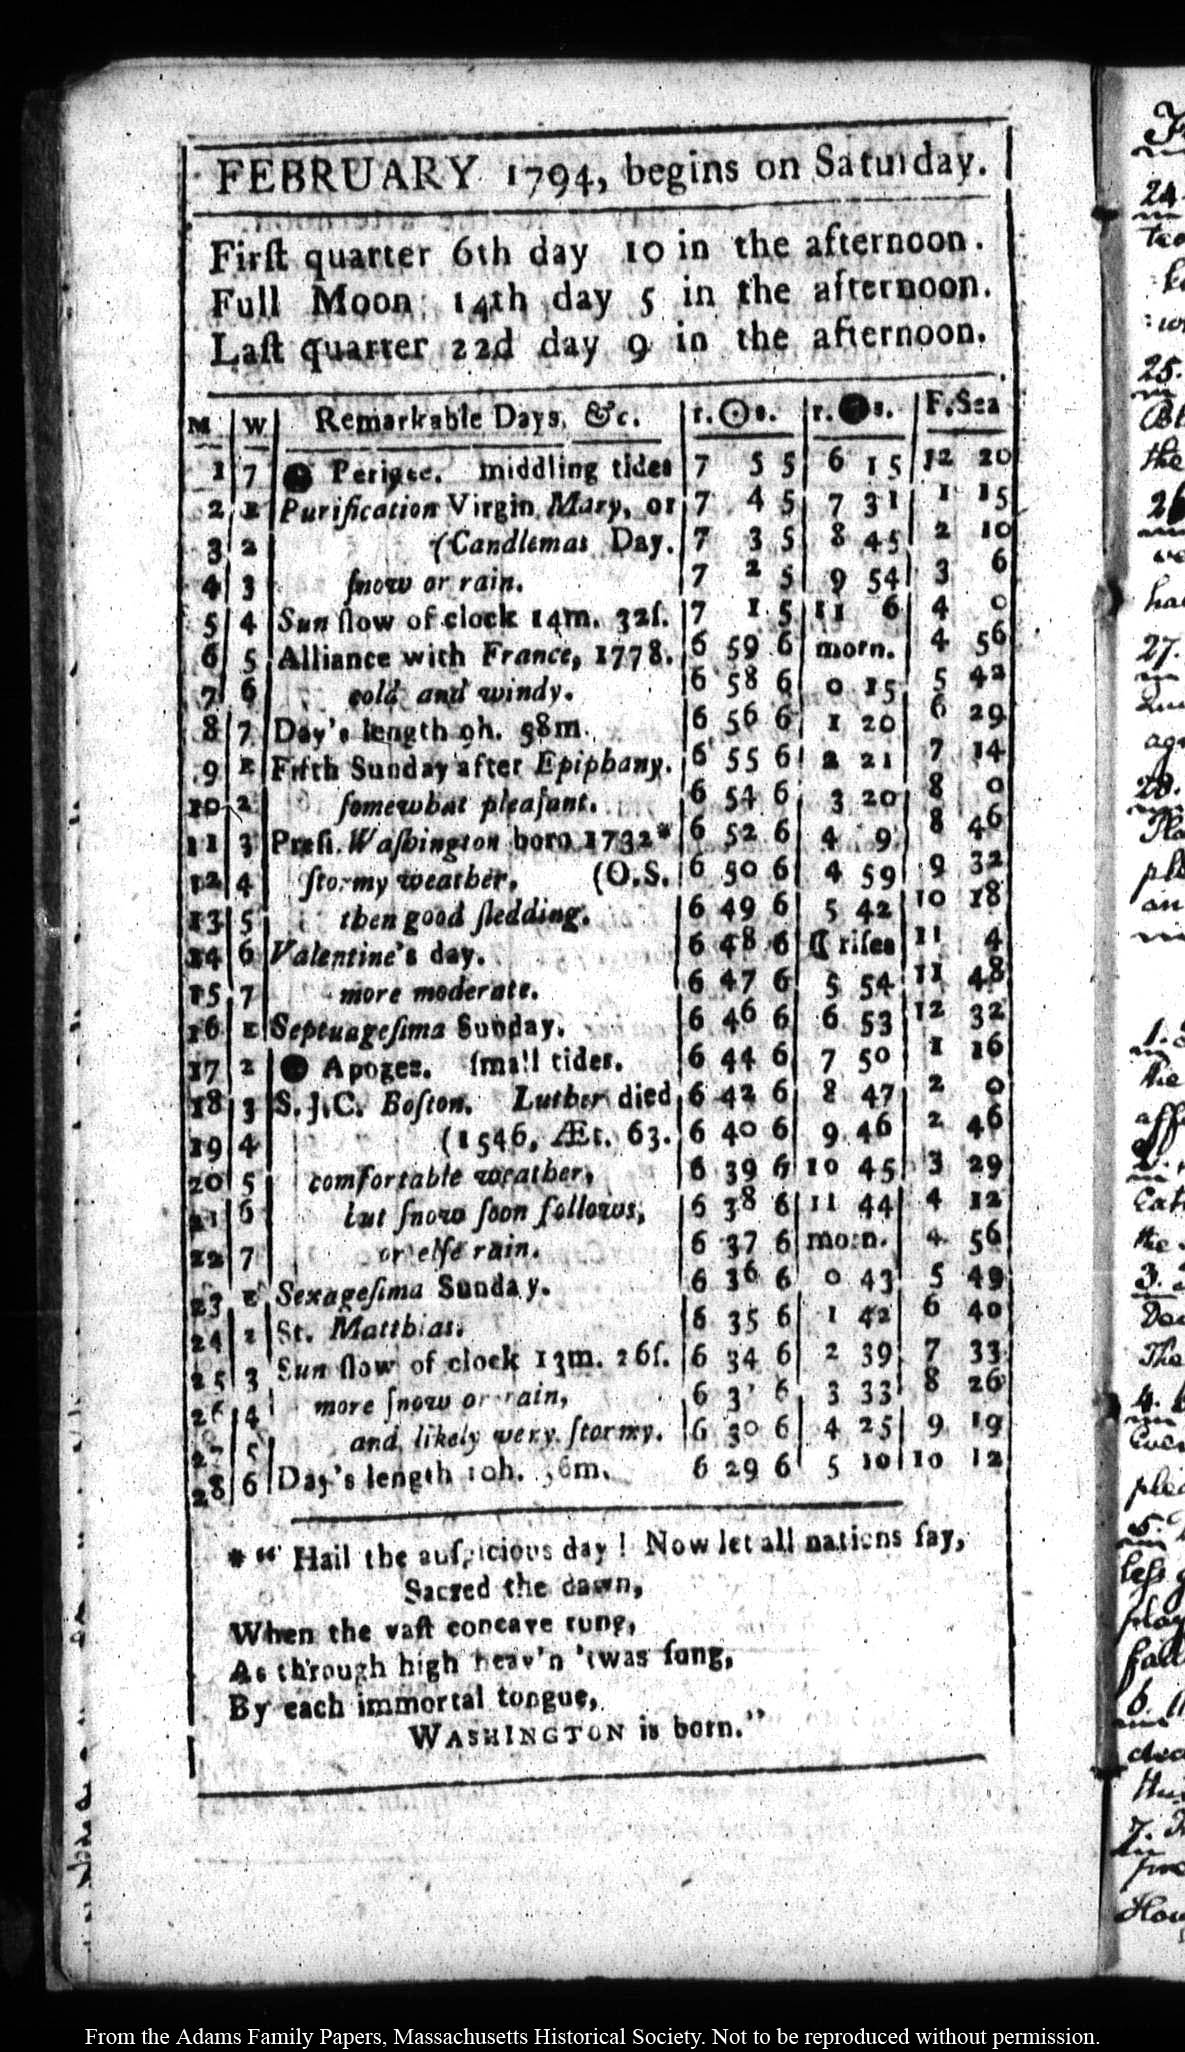 FEBRUARY 1794, begins on Saturday.
Firſt quarter 6th day 10 in the afternoon.
Full Moon 14th day 5 in the afternoon.
Laſt quarter 22d day 9 in the afternoon.
M W Remarkable Days, &c. r. ☉ s. r. ● s. F. Sea
1 7 ● Perigee. middling tides 7 5 5 6 15 12 20
2 E Purification Virgin Mary, or 7 4 5 7 31 1 15
3 2 (Candlemas Day. 7 3 5 8 45 2 10
4 3 ſnow or rain. 7 2 5 9 54 3 6
5 4 Sun ſlow of clock 14m. 32ſ. 7 1 5 11 6 4 0
6 5 Alliance with France, 1778. 6 59 6 morn. 4 56
7 6 cold and windy. 6 58 6 0 15 5 42
8 7 Day's length 9h. 58m. 6 56 6 1 20 6 29
9 E Fifth Sunday after Epiphany. 6 55 6 2 21 7 14
10 2 ſomewhat pleaſant. 6 54 6 3 20 8 0
11 3 Preſi. Waſhington born 1732* 6 52 6 4 9 8 46
12 4 ſtormy weather, (O.S. 6 50 6 4 59 9 32
13 5 then good ſledding. 6 49 6 5 42 10 18
14 6 Valentine's day. 6 48 6 ☾ riſes 11 4
15 7 more moderate. 6 47 6 5 54 11 48
16 E Septuageſima Sunday. 6 46 6 6 53 12 32
17 2 ● Apogee. ſmall tides. 6 44 6 7 50 1 16
18 3 S. J. C. Boſton. Luther died 6 42 6 8 47 2 0
19 4 (1546, Æt. 63. 6 40 6 9 46 2 46
20 5 comfortable weather, 6 39 6 10 45 3 29
21 6 but ſnow ſoon follows, 6 38 6 11 44 4 12
22 7 or elſe rain. 6 37 6 morn. 4 56
23 E Sexageſima Sunday. 6 36 6 0 43 5 49
24 2 St. Matthias. 6 35 6 1 42 6 40
25 3 Sun ſlow of clock 13m. 26ſ. 6 34 6 2 39 7 33
26 4 more ſnow or rain, 6 6 3 33 8 26
27 5 and likely very ſtormy. 6 30 6 4 25 9 19
28 6 Day's length 10h. 6 29 6 5 10 10 12
*“ Hail the auſpicious day! Now let all nations ſay,
Sacred the dawn,
When the vaſt concave rung,
As through high heav'n 'twas ſung,
By each immortal tongue,
WASHINGTON is born.”
24.
25.
the
26
27.
28.
1.
the
2.
the
3.
The
4.
5.
6.
7.
From the Adams Family Papers, Massachusetts Historical Society. Not to be reproduced without permission.